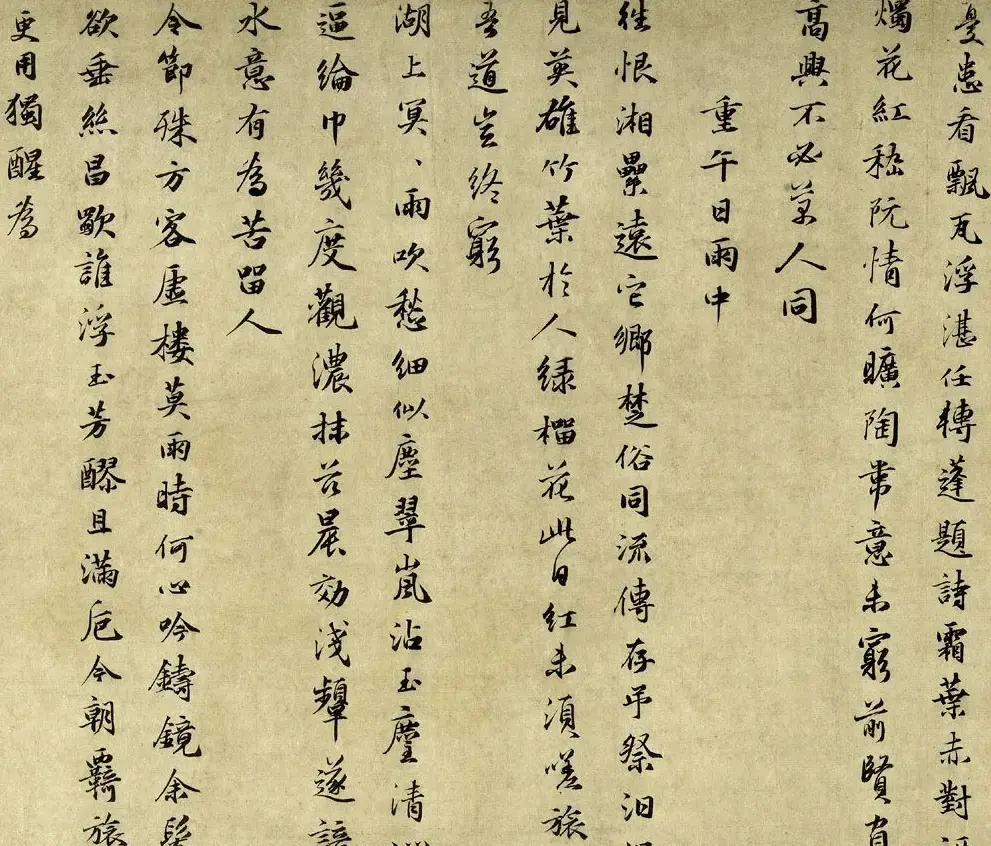 是患看飄瓦浮湛任轉蓬題詩霜葉赤對
燭花紅嵇阮情何曠陶韋意未窮前賢有
高興不必萬人同
重午日雨中
徃恨湘纍遠它鄉楚俗同流傳存弔祭汨
見英雄竹葉於人緑榴花此日紅未須嗟旅
吾道豈終窮
湖上冥、雨吹愁細似塵翠嵐沾玉麈清
逼綸巾幾度觀濃抹茲晨効淺顰遂諳
水意有為苦留人
令節殊方客虛樓莫雨時何心吟鑄鏡余髮
欲垂絲昌歜誰浮玉芳醪且滿卮今朝羈旅
更用獨醒為